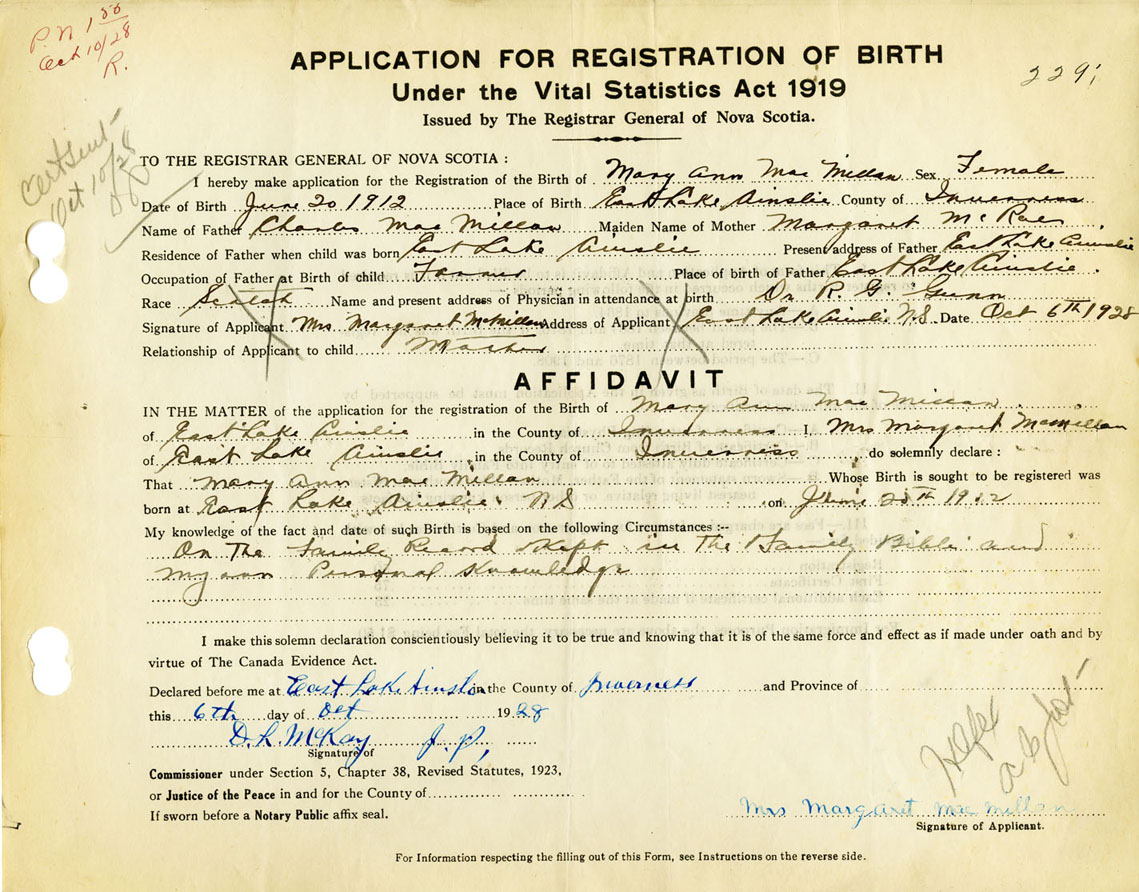 P.N 1 00
Oct 10/28
R.
APPLICATION FOR REGISTRATION OF BIRTH
229
Under the Vital Statistics Act 1919
Issued by The Registrar General of Nova Scotia.
Cert sent
Oct 10/28
TO THE REGISTRAR GENERAL OF NOVA SCOTIA :
I hereby make application for the Registration of the Birth of Mary Ann Mac Millan Sex Female
Date of Birth June 20 1912 Place of Birth East Lake Ainslie County of Inverness
Name of Father Charles Mac Millan Maiden Name of Mother Margaret McRae
Residence of Father when child was born East Lake Ainslie Present address of Father East Lake Ainslie
Occupation of Father at Birth of child Farmer Place of birth of Father East Lake Ainslie
Race Scotch Name and present address of Physician in attendance at birth Dr R. G. Gunn
Signature of Applicant Mrs. Margaret McMillan Address of Applicant East Lake Ainslie N.S. Date Oct 6th 1928
Relationship of Applicant to child Mother
AFFIDAVIT
IN THE MATTER of the application for the registration of the Birth of Mary Ann Mac Millan
of East Lake Ainslie in the County of Inverness I, Mrs Margaret McMillan
of East Lake Ainslie in the County of Inverness do solemnly declare :
That Mary Ann Mac Millan Whose Birth is sought to be registered was
born at East Lake Ainslie N S on June 20th 1912
My knowledge of the fact and date of such Birth is based on the following Circumstances :--
On The Family Record Kept in The Family Bible and
my own Personal Knowledge
I make this solemn declaration conscientiously believing it to be true and knowing that it is of the same force and effect as if made under oath and by
virtue of The Canada Evidence Act.
Declared before me at East Lake Ainslie in the County of Inverness and Province of
this 6th day of Oct 1928
D. L. McKay J. P.
Signature of
Commissioner under Section 5, Chapter 38, Revised Statutes, 1923,
or Justice of the Peace in and for the County of
If sworn before a Notary Public affix seal.
Mrs Margaret Mac Millan
Signature of Applicant.
For Information respecting the filling out of this Form, see Instructions on the reverse side.